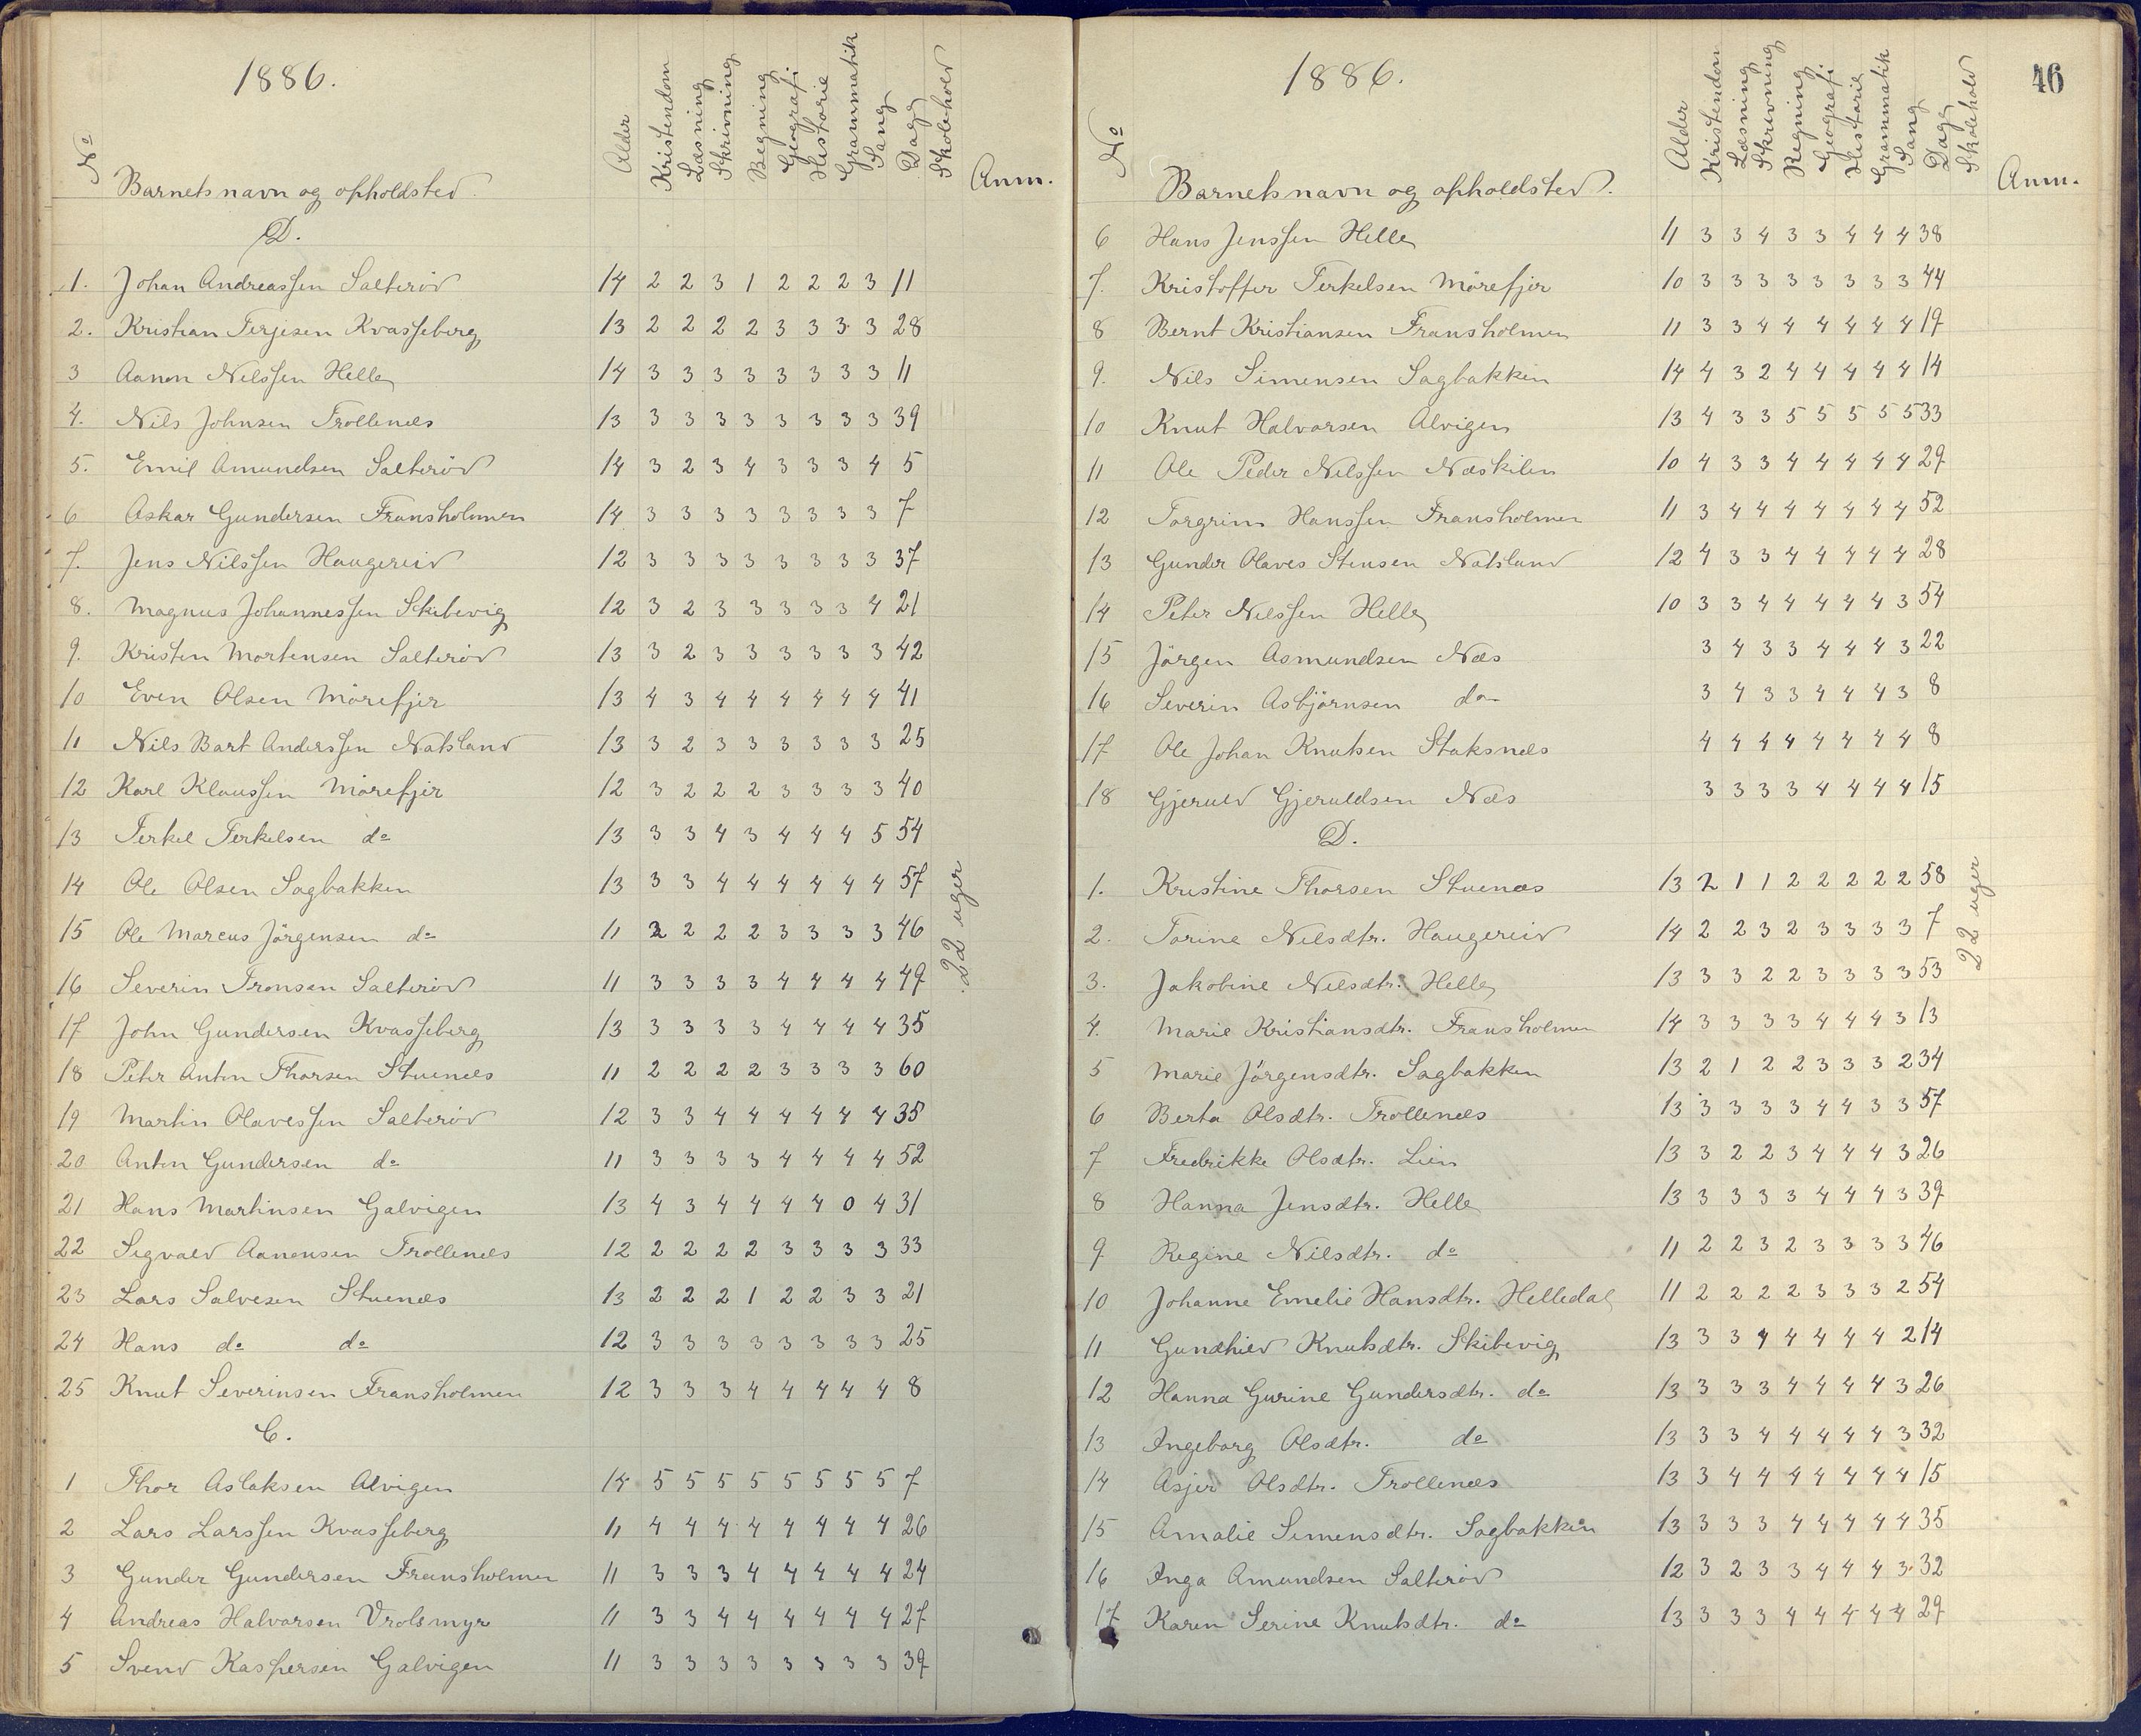 1886.
No Barnets navn og opholdsted. Alder Kristendom Læsning Skrivning Regning Geografi Historie Grammatik Sang Dage Skolehold Anm.
D.
1. Johan Andreassen Salterød 14 2 2 3 1 2 2 2 3 11
2. Kristian Terjesen Kvasseberg 13 2 2 2 2 3 3 3 3 28
3 Aanon Nelssen Helle 14 3 3 3 3 3 3 3 3 11
4. Nils Johnsen Trollenæs 13 3 3 3 3 3 3 3 3 39
5. Emil Amundsen Salterød 14 3 2 3 4 3 3 3 4 5
6 Askar Gundersen Fransholmen 14 3 3 3 3 3 3 3 3 7
7. Jens Nilssen Haugereid 12 3 3 3 3 3 3 3 3 37
8. Magnus Johannessen Skibevig 12 3 2 3 3 3 3 3 4 21
9. Kristen Mortensen Salterød 13 3 2 3 3 3 3 3 3 42
10 Even Olsen Mörefjer 13 4 3 4 4 4 4 4 4 41
11 Nils Bart Anderssen Natsland 13 3 2 3 3 3 3 3 3 25
12 Karl Klaussen Mörefjer 12 3 2 2 2 3 3 3 3 40
13 Terkel Terkelsen do 13 3 3 4 3 4 4 4 5 54
14 Ole Olsen Sagbakken 13 3 3 4 4 4 4 4 4 57
15 Ole Marcus Jörgensen do 11 2 2 2 2 3 3 3 3 46
16 Severin Tronsen Salterød 11 3 3 3 3 4 4 4 4 49
17 John Gundersen Kvasseberg 13 3 3 3 3 4 4 4 4 35
18 Peter Anton Thorsen Stuenæs 11 2 2 2 2 3 3 3 3 60
19 Martin Olavessen Salterød 12 3 3 4 4 4 4 4 4 35
20 Anton Gundersen do 11 3 3 3 3 4 4 4 4 52
21 Hans Martinsen Galvigen 13 4 3 4 4 4 4 0 4 31
22 Sigvald Aanonsen Trollenæs 12 2 2 2 2 3 3 3 3 33
23 Lars Salvesen Stuenæs 13 2 2 2 1 2 2 3 3 21
24 Hans do do 12 3 3 3 3 3 3 3 3 25
25 Knut Severinsen Fransholmen 12 3 3 3 4 4 4 4 4 8
22 uger
C.
1 Thor Aslaksen Alvigen 14 5 5 5 5 5 5 5 5 7
2 Lars Larssen Kvasseberg 11 4 4 4 4 4 4 4 4 26
3 Gunder Gundersen Fransholmen 11 3 3 3 4 4 4 4 4 24
4 Andreas Halvorsen Vrolsmyr 11 3 3 4 4 4 4 4 4 27
5 Svend Kaspersen Galvigen 11 3 3 3 3 3 3 3 3 39
1886.
46
No Barnets navn og opholdsted. Alder Kristendom Læsning Skrivning Regning Geografi Historie Grammatik Sang Dage Skolehold Anm.
6 Hans Jenssen Helle 11 3 3 4 3 3 4 4 4 38
7. Kristoffer Terkelsen Mörefjer 10 3 3 3 3 3 3 3 3 44
8 Bernt Kristiansen Fransholmen 11 3 3 4 4 4 4 4 4 19
9. Nils Simensen Sagbakken 14 4 3 2 4 4 4 4 4 14
10 Knut Halvorsen Alvigen 13 4 3 3 5 5 5 5 5 33
11 Ole Peder Nilssen Næskilen 10 4 3 3 4 4 4 4 4 29
12 Torgrim Hanssen Fransholmen 11 3 4 4 4 4 4 4 4 52
13 Gunder Olaves Stensen Natsland 12 4 3 3 4 4 4 4 4 28
14 Peter Nelssen Helle 10 3 3 4 4 4 4 4 3 54
15 Jörgen Asmundsen Næs 3 4 3 3 4 4 4 3 22
16 Severin Asbjörnsen do 3 4 3 3 4 4 4 3 8
17 Ole Johan Knutsen Staksnæs 4 4 4 4 4 4 4 4 8
18 Gjeruld Gjeruldsen Næs 3 3 3 3 4 4 4 4 15
D.
1. Kristine Thorsen Stuenæs 13 2 1 1 2 2 2 2 2 58
2. Torine Nilsdtr. Haugereid 14 2 2 3 2 3 3 3 3 7
3. Jakobine Nilsdtr. Helle 13 3 3 2 2 3 3 3 3 53
4. Marie Kristiansdtr. Fransholmen 14 3 3 3 3 4 4 4 3 13
5 Marie Jörgensdtr. Sagbakken 13 2 1 2 2 3 3 3 2 34
6 Berta Olsdtr. Trollenæs 13 3 3 3 3 4 4 3 3 57
7 Fredrikke Olsdtr. Lien 13 3 2 2 3 4 4 4 3 26
8 Hanna Jensdtr. Helle 13 3 3 3 3 4 4 4 3 39
9 Regine Nilsdtr. do 11 2 2 3 2 3 3 3 3 46
10 Johanne Emelie Hansdtr. Helledal 11 2 2 2 2 3 3 3 2 54
11 Gundhild Knutsdtr. Skibevig 13 3 3 4 4 4 4 4 2 14
12 Hanna Gurine Gundersdtr. do 13 3 3 3 4 4 4 4 3 26
13 Ingeborg Olsdtr. do 13 3 3 4 4 4 4 4 3 32
14 Asjer Olsdtr. Trollenæs 13 3 4 4 4 4 4 4 4 15
15 Amalie Simensdtr. Sagbakken 13 3 3 3 4 4 4 4 4 35
16 Inga Amundsen Salterød 12 3 2 3 3 4 4 4 3 32
17 Karen Serine Knutsdtr. do 13 3 3 3 4 4 4 4 4 29
22 uger